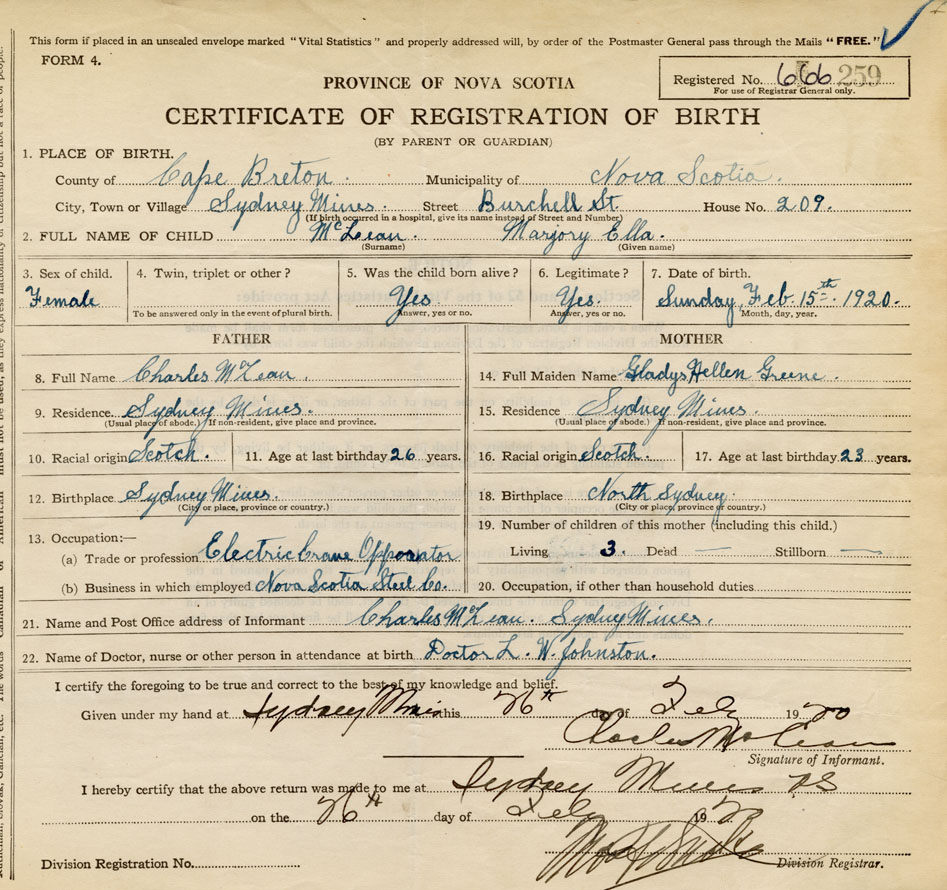 This form if placed in an unsealed envelope marked "Vital Statistics" and properly addressed will, by order of the Postmaster General pass through the Mails "FREE."
FORM 4.
Registered No. 666 259
For use of Registrar General only.
PROVINCE OF NOVA SCOTIA
CERTIFICATE OF REGISTRATION OF BIRTH
(BY PARENT OR GUARDIAN)
1. PLACE OF BIRTH.
County of Cape Breton. Municipality of Nova Scotia.
City, Town or Village Sydney Mines. Street Burchell St. House No. 209.
(If birth occurred in a hospital, give its name instead of Street and Number)
2. FULL NAME OF CHILD McLean. Marjory Ella.
(Surname) (Given name)
3. Sex of child. 4. Twin, triplet or other? 5. Was the child born alive? 6. Legitimate? 7. Date of birth.
Female Yes. Yes. Sunday, Feb. 15th 1920.
To be answered only in the event of plural birth. Answer, yes or no. Answer, yes or no. Month, day, year.
FATHER
8. Full Name Charles McLean.
9. Residence. Sydney Mines.
(Usual place of abode.) If non-resident, give place and province.
10. Racial origin Scotch. 11. Age at last birthday 26 years.
12. Birthplace Sydney Mines.
(City or place, province or country.)
13. Occupation:—
(a) Trade or profession Electric Crane Opporator
(b) Business in which employed Nova Scotia Steel Co.
MOTHER
14. Full Maiden Name Gladys Hellen Greene.
15. Residence Sydney Mines.
(Usual place of abode.) If non-resident, give place and province.
16. Racial origin Scotch. 17. Age at last birthday 23 years.
18. Birthplace North Sydney.
(City or place, province or country.)
19. Number of children of this mother (including this child.)
Living 3. Dead — Stillborn —
20. Occupation, if other than household duties
21. Name and Post Office address of Informant Charles McLean. Sydney Mines.
22. Name of Doctor, nurse or other person in attendance at birth Doctor L. W. Johnston.
I certify the foregoing to be true and correct to the best of my knowledge and belief.
Given under my hand at Sydney Mines this 26th day of Feby 1920
Charles McLean
Signature of Informant.
I hereby certify that the above return was made to me at Sydney Mines NS
on the 26th day of Feby 1920
Division Registration No. Division Registrar.